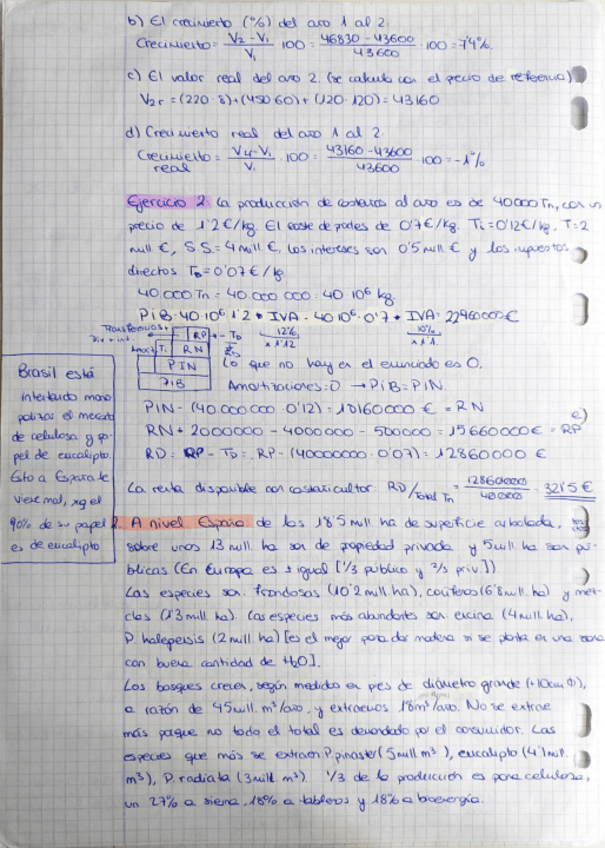 b) El crecimiento (%) del año 1 al 2.
Crecimiento = V₂ - V₁ / V₁ · 100 = 46830 - 43600 / 43600 · 100 = 7'4%.
c) El valor real del año 2. (se calcula con el precio de referencia)
V₂r = (220·8)+(450·60)+(120·120) = 43160
d) Crecimiento real del año 1 al 2
Crecimiento real = V₄-V₁ / V₁ · 100 = 43160 - 43600 / 43600 · 100 = -1%
Ejercicio 2: La producción de castañas al año es de 40000 Tn, con un
precio de 1'2€/kg. El coste de podes de 0'7€/kg. Ti=0'12€/kg, T=2
mill €, SS=4 mill €, los intereses son 0'5 mill € y los impuestos
directos TD=0'07€/kg
40.000 Tn = 40 000 000 = 40·10⁶ kg
PiB = 40·10⁶·1'2 + IVA - 40·10⁶·0'7 + IVA = 22960000€
12% x1'12
10% x1'1
Transferencias
RP - TD
Amort Ti RN
PIN
PIB
Lo que no hay en el enunciado es 0.
Amortizaciones = 0 → PiB = PiN.
PIN - (40 000 000·0'12) = 18160000 € = RN
RN + 2000000 - 4000000 - 500000 = 15660000€ = RP
RD = RP - TD = RP - (40000000·0'07) = 12860000 €
La renta disponible por castañicultor: RD/Total Tn = 12860000 / 40000 = 321'5€
Brasil está
intentando mono
polizar el mercado
de celulosa y pa
pel de eucalipto.
Esto a España le
viene mal, xq el
90% de su papel
es de eucalipto
2. A nivel España: de los 18'5 mill ha de superficie arbolada,
sobre unos 13 mill ha son de propiedad privada y 5 mill ha son pú-
blicas (En Europa es + igual [1/3 público y 2/3 priv.])
Las especies son: frondosas (10'2 mill ha), coníferas (6'8 mill ha) y mez-
clas (1'3 mill ha). Las especies más abundantes son encina (4 mill ha),
P. halepensis (2 mill ha) [es el mejor para dar madera si se planta en una zona
con buena cantidad de H₂O].
Los bosques crecen, según medido en pies de diámetro grande (+10cm Φ),
a razón de 45 mill m³/año, y extraemos 18m³/año. No se extrae
más porque no todo el total es demandado por el consumidor. Las
especies que más se extraen P. pinaster (5 mill m³), eucalipto (4'1 mill
m³), P. radiata (3 mill m³). 1/3 de la producción es para celulosa,
un 27% a sierra, 18% a tableros y 18% a bioenergía.